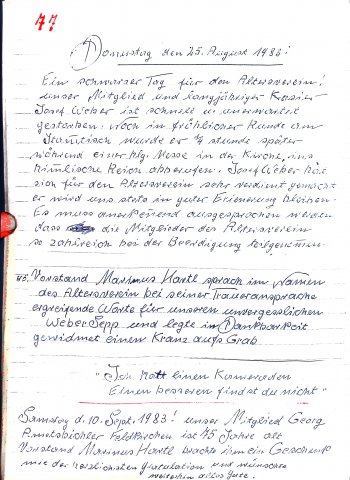 47
Donnerstag den 25. August 1983!
Ein schwarzer Tag für den Altersverein!
unser Mitglied und langjähriger Kassier
Josef Weber ist schnell u. unerwartet
gestorben. Noch in fröhlicher Runde am
Stammtisch wurde er 3/4 stunde später
während einer hlg. Messe in der Kirche, ins
himmlische Reich abberufen. Josef Weber hat
sich für den Altersverein sehr verdient gemacht
er wird uns stets in guter Erinnerung bleiben.
Es muss anerkennend ausgesprochen werden
dass die Mitglieder des Altersverein
so zahlreich bei der Beerdigung teilgenommen
Vorstand Maximus Hartl sprach im Namen
des Altersverein bei seiner Traueransprache
ergreifende Worte für unseren unvergesslichen
Weber Sepp und legte in Dankbarkeit
gewidmet einen Kranz aufs Grab
"Ich hatt einen Kameraden
Einen besseren findst du nicht"
Samstag d. 10. Sept. 1983! unser Mitglied Georg
Feldkirchen ist 75 Jahre alt
Vorstand Maximus Hartl brachte ihm ein Geschenk
mit der herzlichsten Gratulation und wünschen
weiterhin alles Gute.